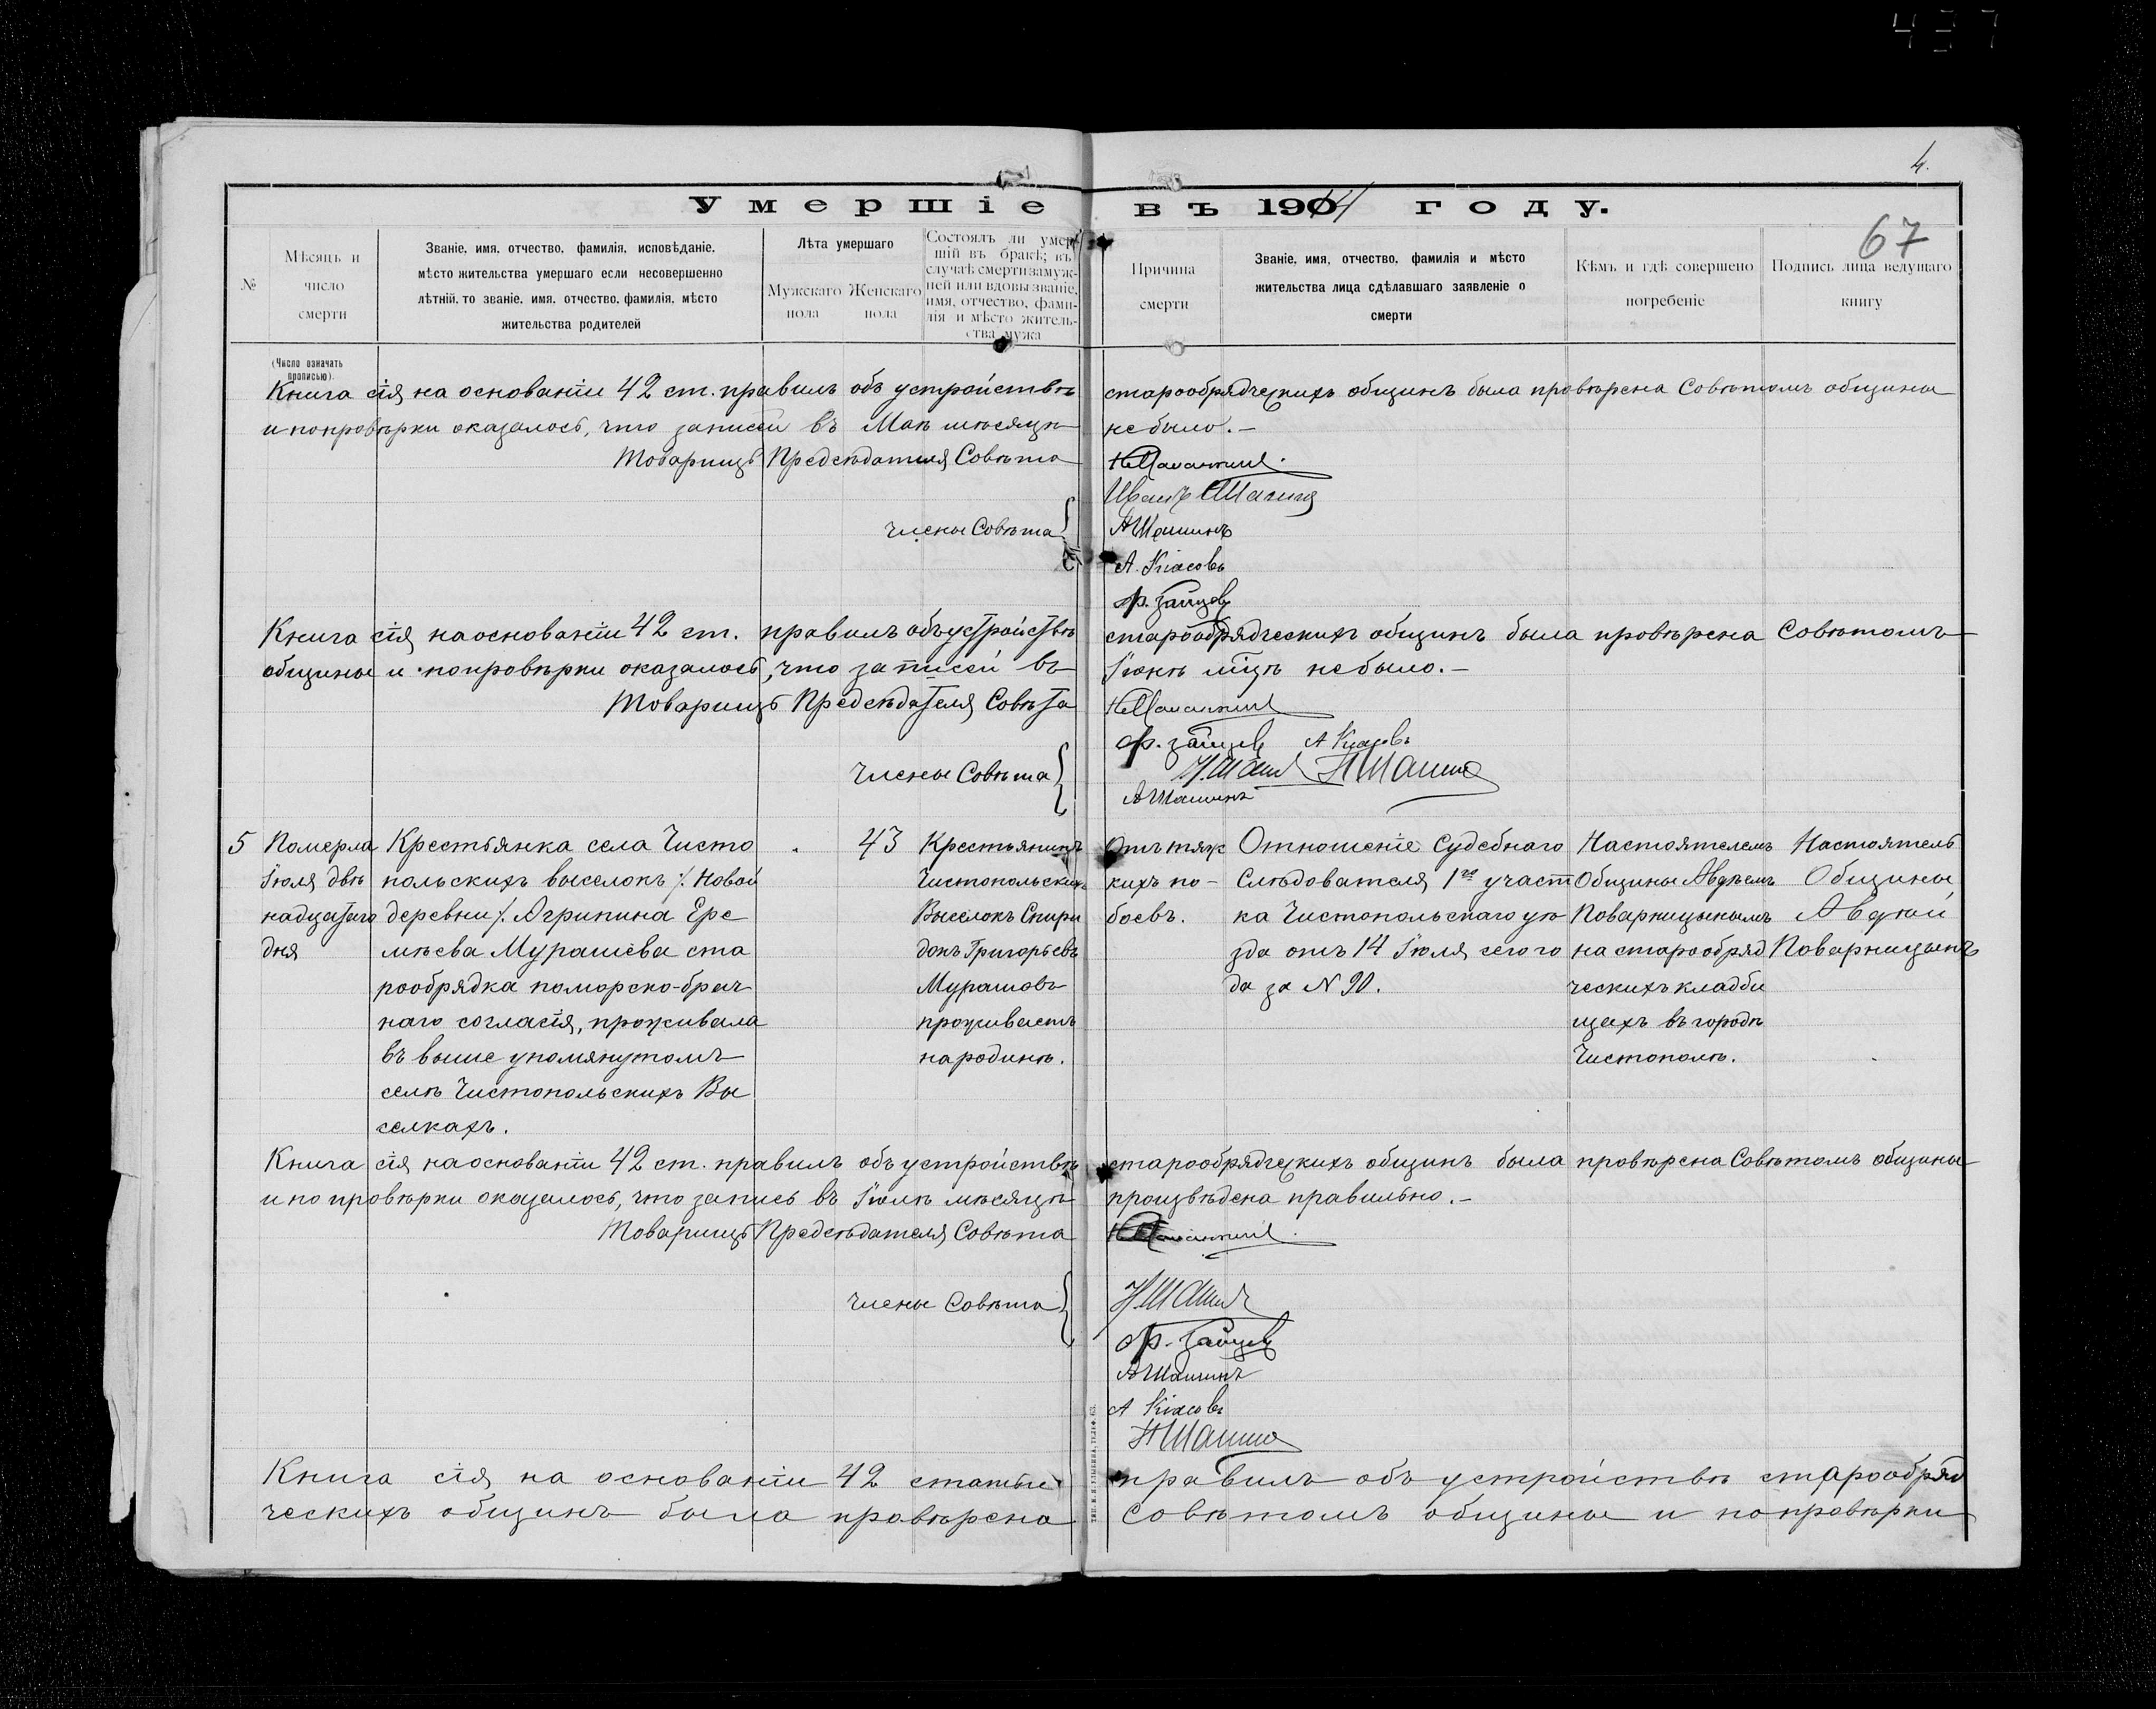 4.
Умершіе въ 1914 году.
67
№
Мѣсяцъ и число смерти
Званіе, имя, отчество, фамилія, исповѣданіе,
мѣсто жительства умершаго если несовершенно
лѣтній, то званіе, имя, отчество, фамилія, мѣсто
жительства родителей
Лѣта умершаго
Мужскаго пола
Женскаго пола
Состоялъ ли умер-
шій въ бракѣ; въ
случаѣ смерти замуж-
ней или вдовы званіе,
имя, отчество, фами-
лія и мѣсто житель-
ства мужа
Причина
смерти
Званіе, имя, отчество, фамилія и мѣсто
жительства лица сдѣлавшаго заявленіе о
смерти
Кѣмъ и гдѣ совершено
погребеніе
Подпись лица ведущаго
книгу
(Число означать
прописью).
Книга сія на основаніи 42 ст. правилъ объ устройствѣ старообрядческихъ общинъ была провѣрена Совѣтомъ общины
и попровѣрки оказалось, что записей въ Маѣ мѣсяцѣ не было.-
Товарищъ Предсѣдателя Совѣта
Иванъ Шашинъ
члены Совѣта
АШашинъ
А. Кіасовъ
Ф. Зайцевъ
Книга сія на основаніи 42 ст. правилъ объ устройствѣ старообрядческихъ общинъ была провѣрена Совѣтомъ
общины и попровѣрки оказалось, что записей въ Іюнѣ мцѣ не было.-
Товарищъ Предсѣдателя Совѣта
Ф. Зайцевъ А Кіасовъ
Члены Совѣта
АШашинъ
5
Померла
Іюля двѣ
надцатаго
дня
Крестьянка села Чисто
польскихъ выселокъ /. Новой
деревни /. Агрипина Ере
мѣева Мурашёва ста
рообрядка поморско-брач
наго согласія, проживала
въ выше упомянутомъ
селѣ Чистопольскихъ Вы
селкахъ.
43
Крестьянинъ
Чистопольскихъ
Выселокъ Спири
донъ Григорьевъ
Мурашовъ
проживаетъ
народинѣ.
Отъ тяж
кихъ по-
боевъ.
Отношеніе Судебнаго
Слѣдователя 1го участ
ка Чистопольскаго уѣ
зда отъ 14 Іюля сего го
да за N 90.
Настоятелемъ
Общины Авдѣемъ
Поварницынымъ
на старообряд
ческихъ кладби
щахъ въ городѣ
Чистополѣ.
Настоятель
Общины
Авдѣй
Поварницынъ
Книга сія на основаніи 42 ст. правилъ объ устройствѣ старообрядческихъ общинъ была провѣрена Совѣтомъ общины
и по провѣрки оказалось, что запись въ Іюлѣ мѣсяцѣ произвѣдена правильно.-
Товарищъ Предсѣдателя Совѣта
члены Совѣта
Ф. Зайцевъ
АШашинъ
А Кіасовъ
Книга сія на основаніи 42 статьи правилъ объ устройствѣ старообряд
ческихъ общинъ была провѣрена Совѣтомъ общины и попровѣрки